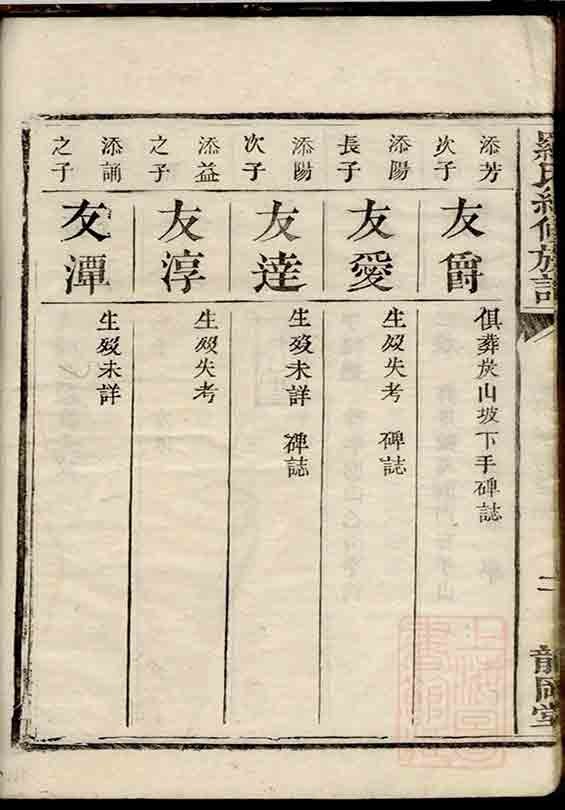 羅氏續修族譜
二
龍岡堂
添芳
次子
友爵
俱葬於山坡下手碑誌
添陽
長子
友愛
生歿失考 碑誌
添陽
次子
友達
生歿未詳 碑誌
添益
之子
友淳
生歿失考
添誦
之子
友潭
生歿未詳